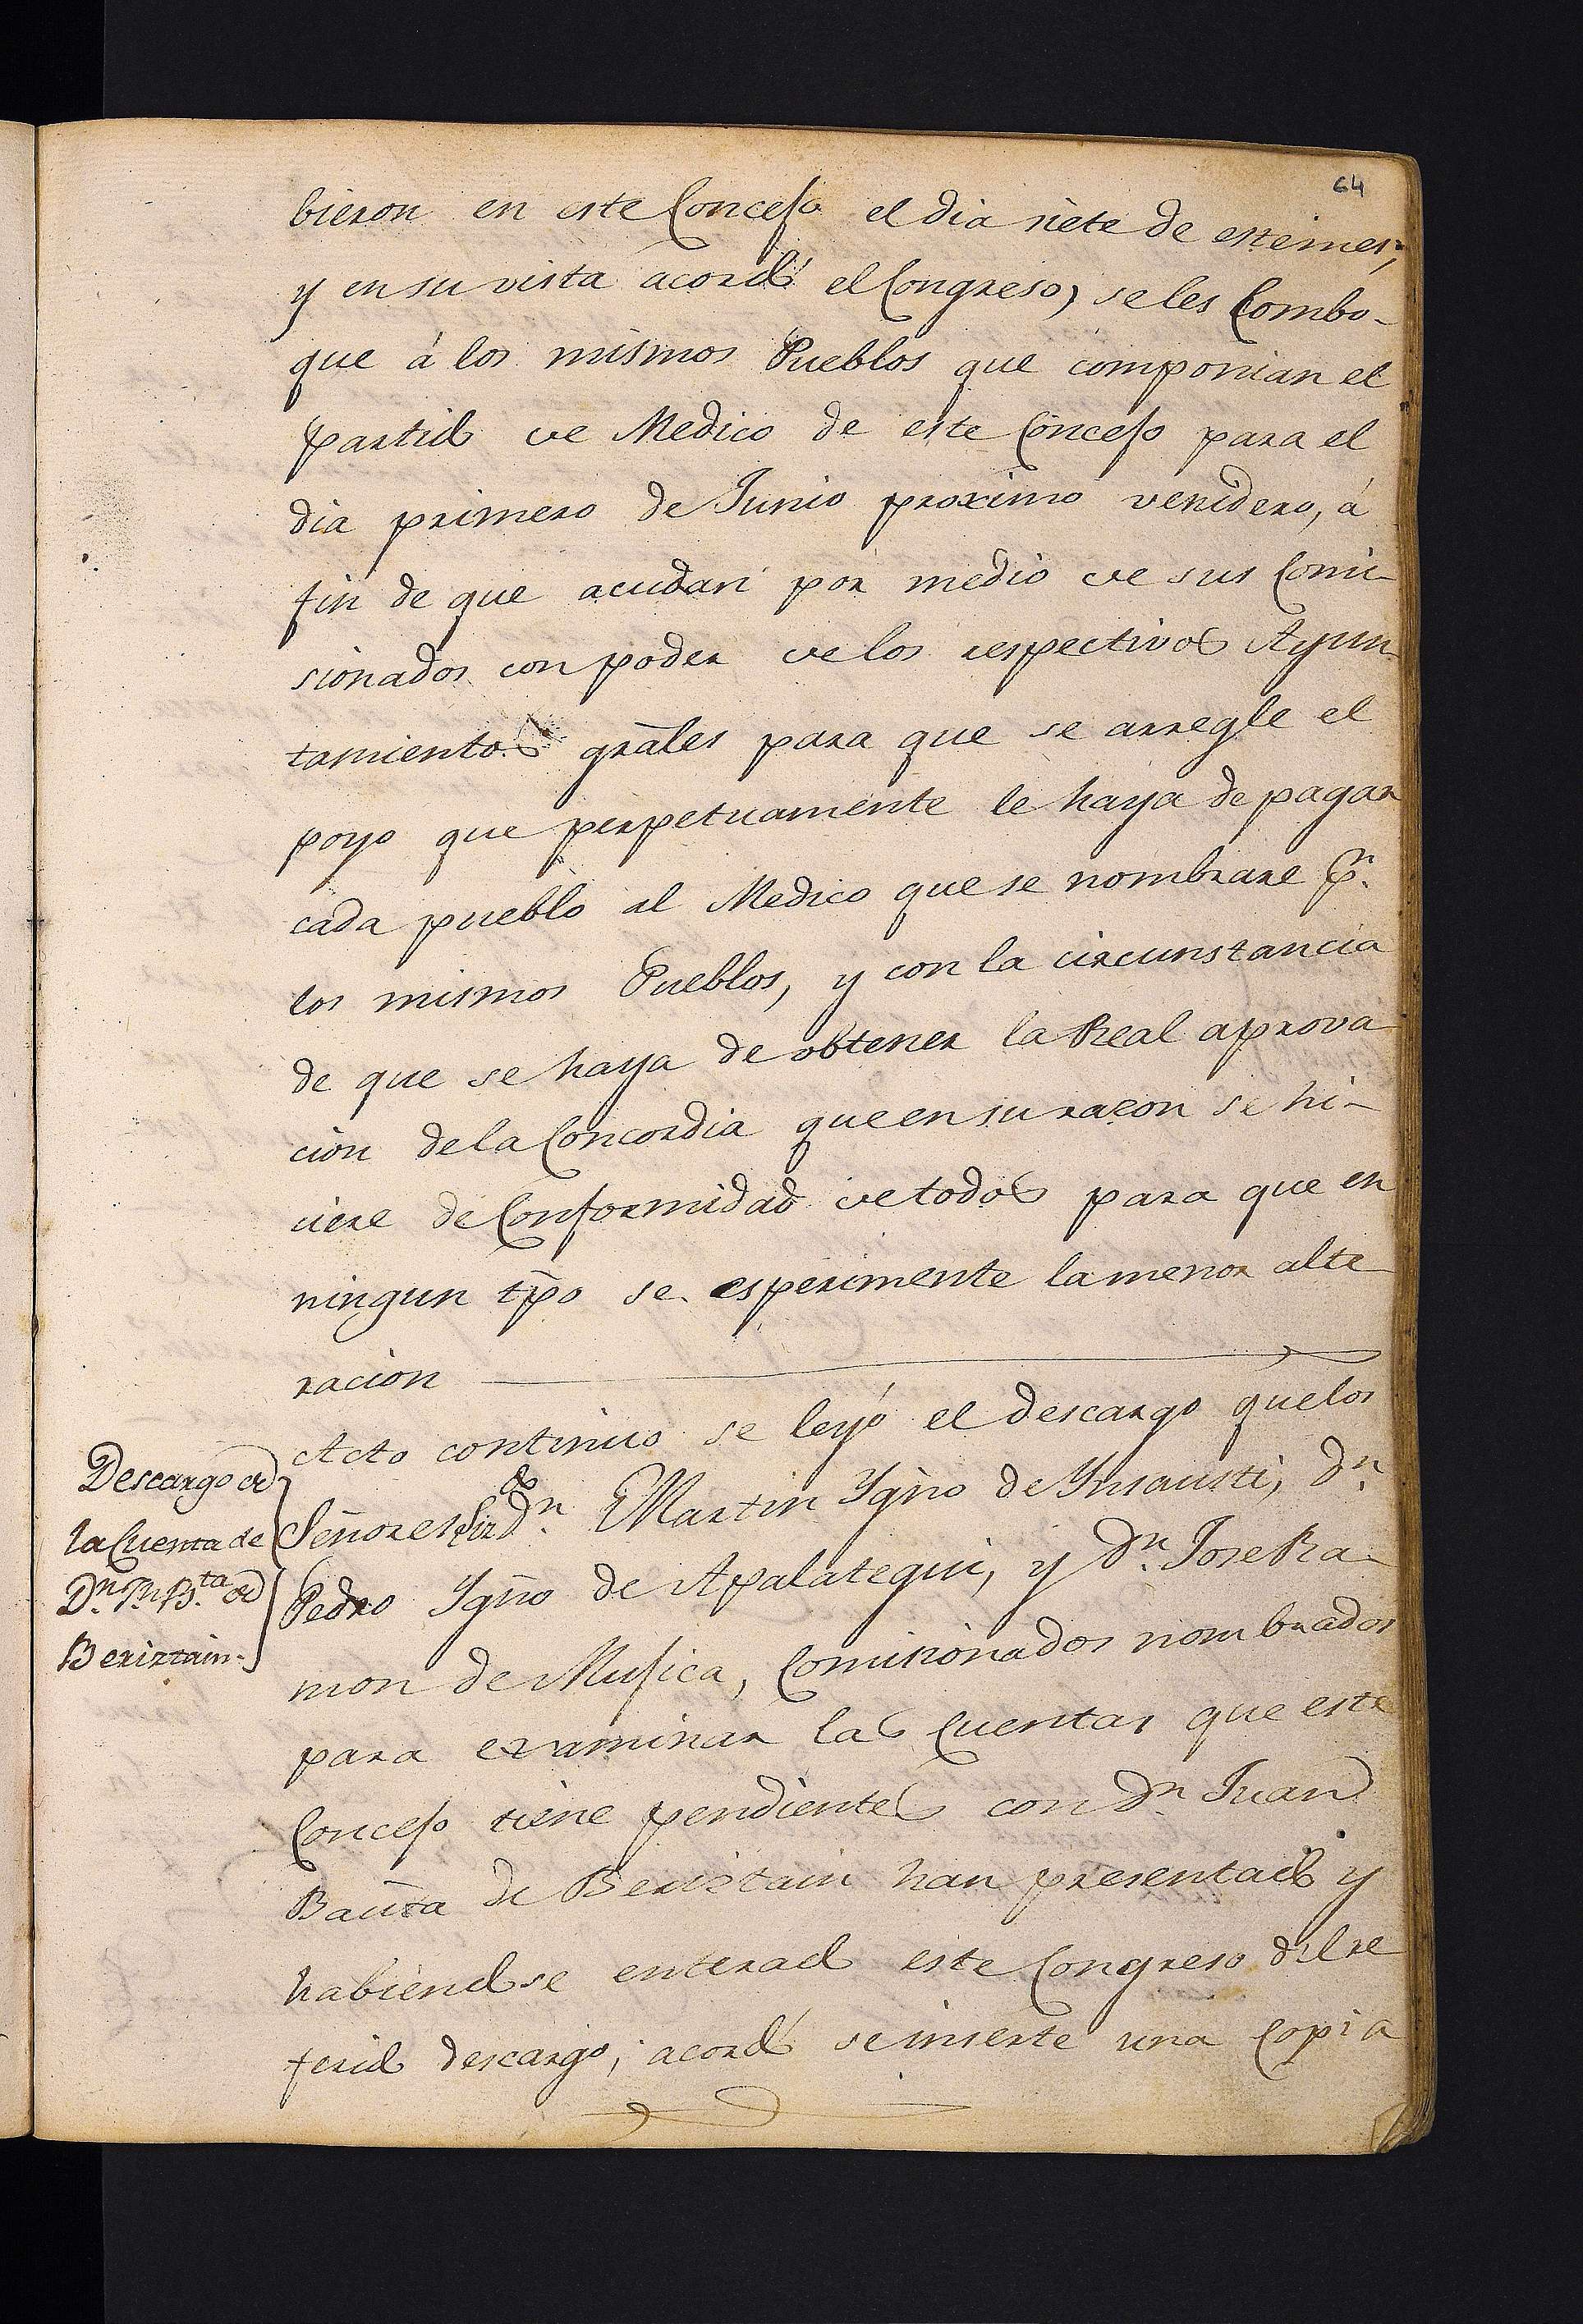 64
bieron en este Concejo el dia siete de este mes,
y en su vista acordó el Congreso, se les Combo-
que á los mismos Pueblos que componian el
partido de Medico de este Concejo para el
dia primero de Junio proximo venidero, á
fin de que acudan por medio de sus Comi-
sionados con poder de los respectivos Ayun
tamientos grãles para que se arregle el
poyo que perpetuamente le haya de pagar
cada pueblo al Medico que se nombrare pr.
los mismos Pueblos, y con la circunstancia
de que se haya de obtener la Real aprova
cion de la Concordia que en su razon se hi-
ciere de Conformidad de todos para que en
ningun tp̃o se esperimente la menor alte
racion
Acto continuo se leyó el descargo que los
Señores Dn. Martin Ygño de Ynsausti, Dn.
Pedro Ygño de Apalategui, y Dn. Jose Ra
mon de Mujica, Comisionados nombrados
para examinar las Cuentas que este
Concejo tiene pendientes con Dn. Juan
Bau̅ta de Beriztain han presentado y
habiendose enterado este Congreso del re
ferido descargo, acordó se inserte una Copia
Descargo de
la Cuenta de
Dn. Jn. Bta. de
Beriztain.